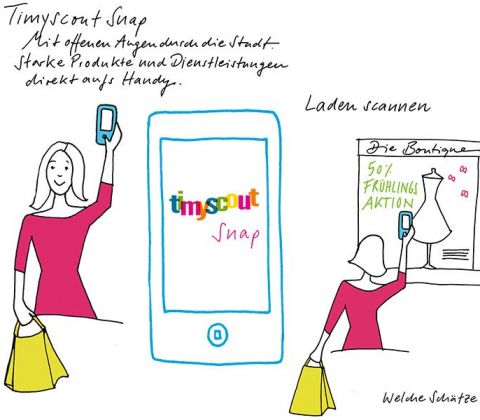 Timyscout Snap
Mit offenen Augen durch die Stadt.
Starke Produkte und Dienstleistungen
direkt aufs Handy.
Laden scannen
Die Boutique
50%
FRÜHLINGS
AKTION
timyscout
Snap
Welche Schätze